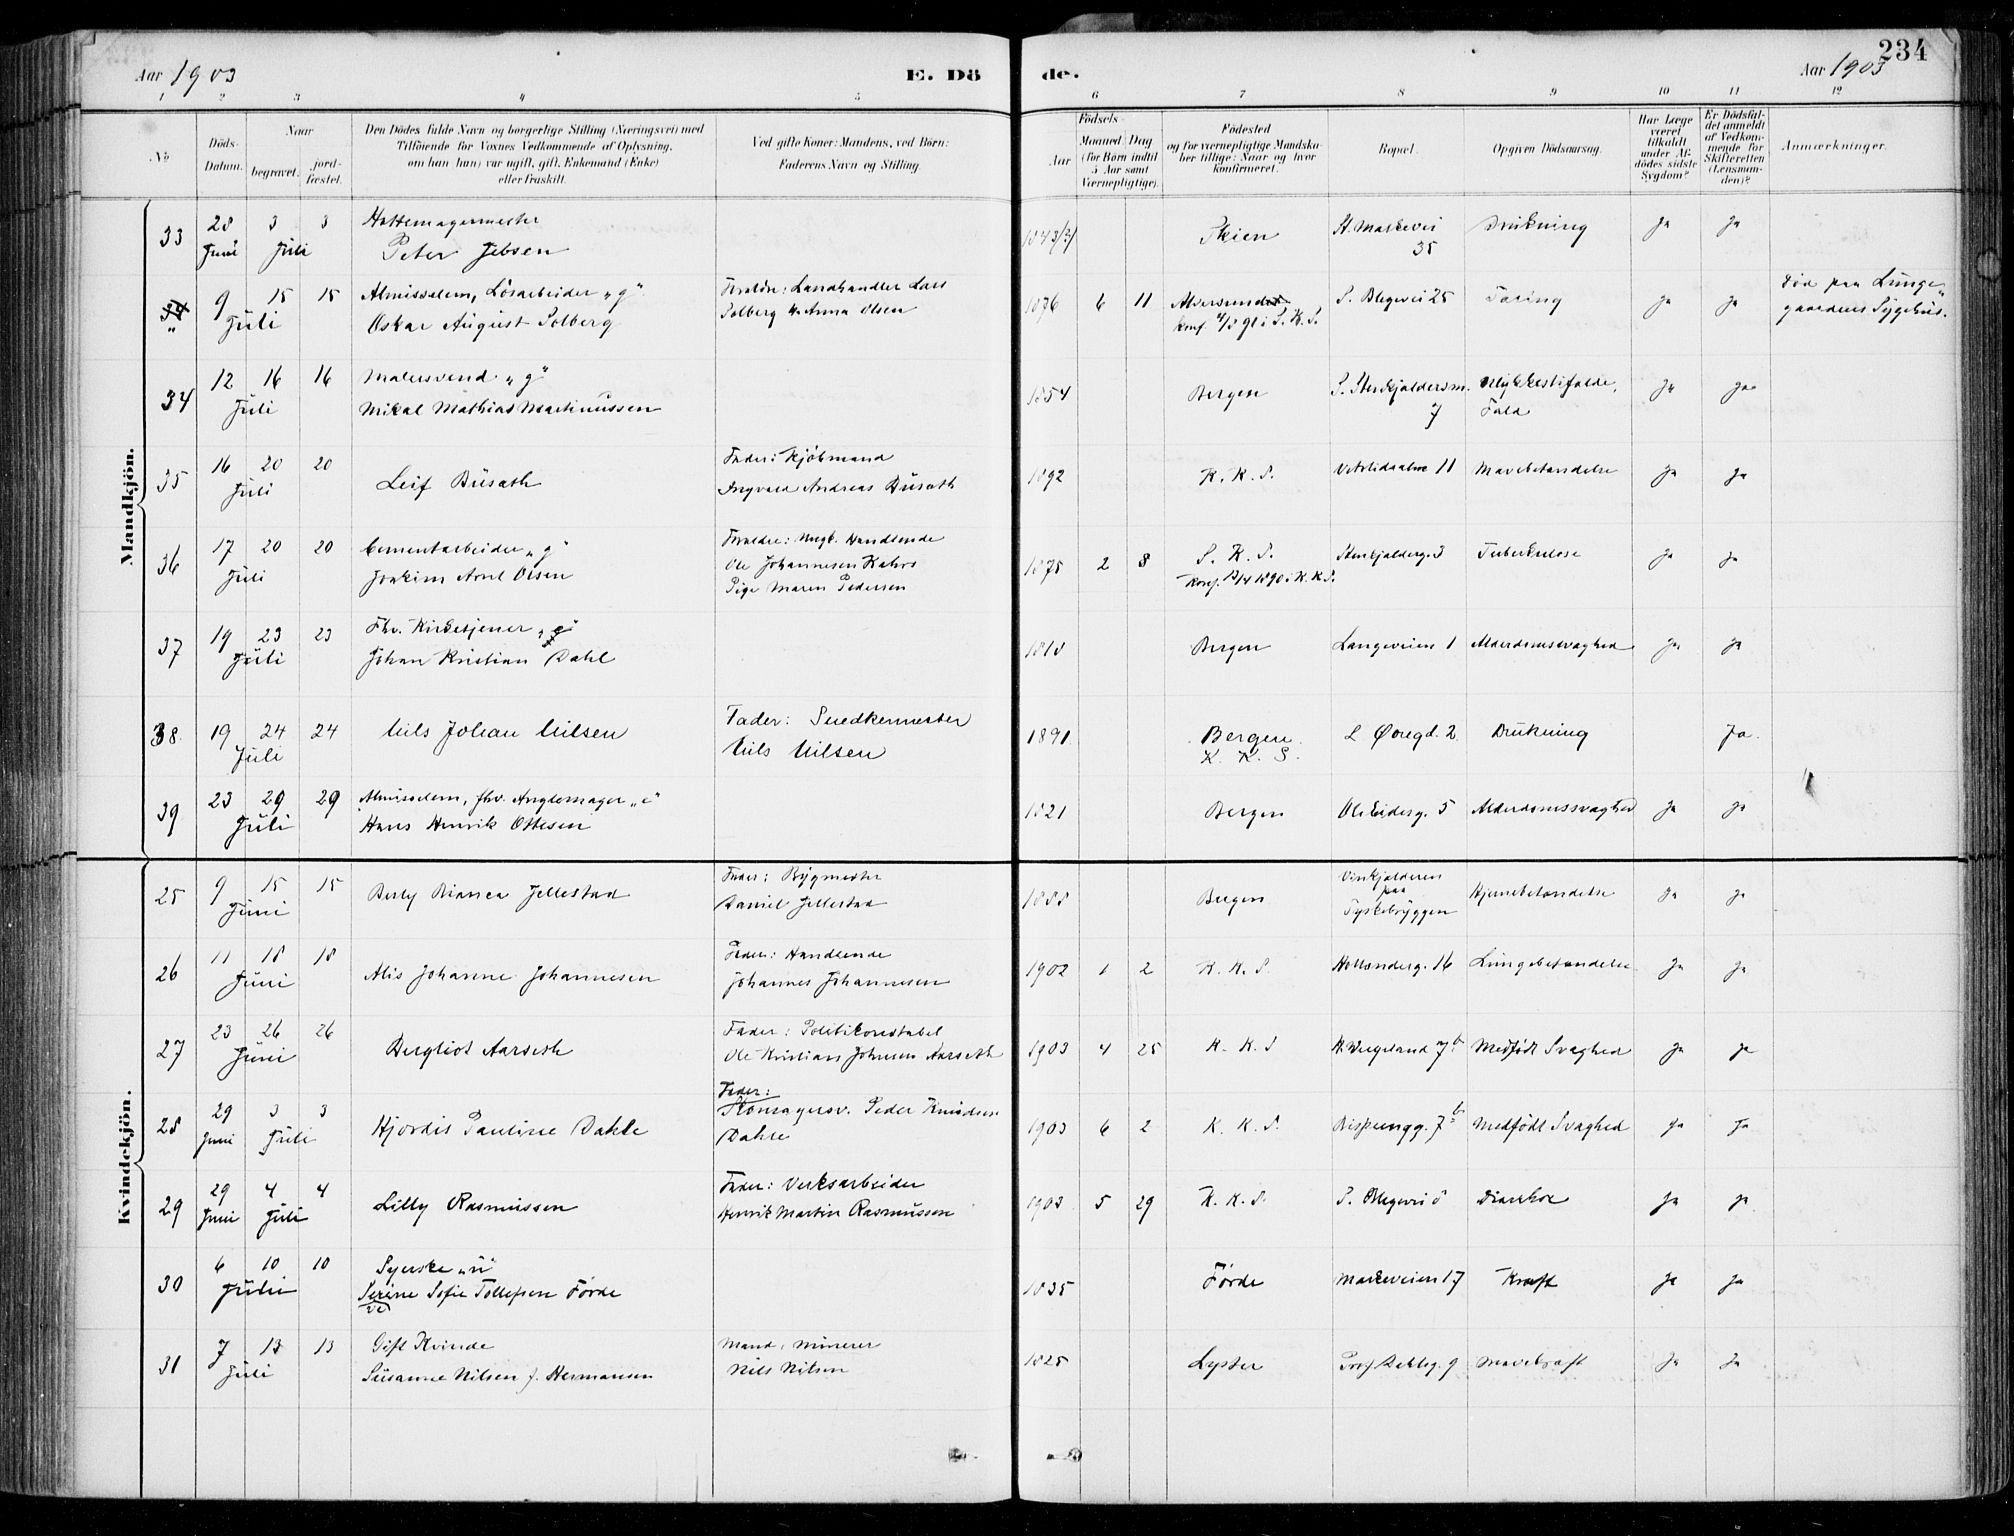 234
Aar 1903 E. Dö de. Aar 1903
1 2 3 4 5 6 7 8 9 10 11 12
No
Döds-Datum.
Naar begravet. jord-fæstet.
Den Dödes fulde Navn og borgerlige Stilling (Næringsvei) med
Tilföiende for Voxnes Vedkommende af Oplysning,
om han (hun) var ugift, gift, Enkemand (Enke)
eller fraskilt.
Ved gifte Koner: Mandens, ved Börn:
Faderens Navn og Stilling.
Födsels-
Aar Maaned (for Börn indtil 5 Aar samt Værnepligtige). Dag
Födested
og for værnepligtige Mandska-
ber tillige: Naar og hvor
konfirmeret.
Bopæl.
Opgiven Dödsaarsag.
Har Læge været tilkaldt under Af-dödes sidste Sygdom?
Er Dödsfal-det anmeldt af Vedkom-mende for Skifteretten (Lensman-den)?
Anmærkninger.
Mandkjön.
33 28 Juni 3 Juli 3 Hattemagermester
Peter Jebsen
Skien St. Markevei 35 Drukning Ja Ja
34 9 Juli 15 15 Almisselem, Lösarbeider "g"
Oskar August Solberg
Forældre: Landhandler Lars
Solberg & Anna Olsen
1876 6 11 Alversund
S. Blegevei 25 Ja Ja
Död paa Lunge-
gaardens Sygehus.
34 12 Juli 16 16 Malersvend "g"
Mikal Mathias Martinussen
1854 Bergen 7 Ulykkestilfælde,
Fald Ja Ja
35 16 Juli 20 20 Leif Büsath
Fader: Kjöbmand
Ingvald Andreas Büsath
1892 K. K. S. 11 Mavebetændelse Ja Ja
36 17 Juli 20 20 Cementarbeider "g"
Joakim Arnt Olsen
Forældre: Ungk. Handlende
Ole Johannesen Kahrs
Pige Maren Pedersen
1875 2 8 S. K. S.
Konf. 13/4 1890 i K. K. S.
Stenkjelderg. 3 Tuberkulose Ja Ja
37 19 Juli 23 23 Fhv. Kirketjener
Johan Kristian Dahl
Bergen Langeveien 1 Alderdomssvaghed Ja Ja
38 19 Juli 24 24 Nils Johan Nilsen
Fader: Snedkermester
Nils Nilsen
1891 Bergen
K. K. S.
L Øvregd. 2 Drukning Ja.
39 23 Juli 29 29 Almisselem, fhv.
Hans Henrik Ottesen
1821 Bergen Ole Euderg. 5 Alderdomssvaghed Ja Ja
Kvindekjön.
25 9 Juni 15 15 Berly Bianca Jellestad
Fader: Bygmester
Daniel Jellestad
1888 Bergen Vinkjælderen
paa
Tyskebryggen
Hjernebetændelse Ja Ja
26 11 Juni 18 18 Alis Johanne Johannesen
Fader: Handlende
Johannes Johannesen
1902 1 2 K. K. S. Hollenderg. 16 Lungebetændelse Ja Ja
27 23 Juni 26 26 Bergliot Aarseth
Fader: Politikonstabel
Ole Kristian Johnsen Aarseth
1903 4 25 K. K. S H. Vergeland 7 b Medfödt Svaghed Ja Ja
28 29 Juni 3 Juli 3 Hjordis Pauline Dahle
Fader:
Skomagersv. Peder Knudsen
Dahle
1903 6 2 K. K. S. Bispeengg. 7 b Medfödt Svaghed Ja Ja
29 29 Juni 4 Juli 4 Lilly Rasmussen
Fader: Verksarbeider
Henrik Martin Rasmussen
1903 5 29 K. K. S. S. Blegevei 8 Diarrhoe Ja Ja
30 6 Juli 10 10 Syerske "u"
Serine Sofie Tollefsen Förde
ve
1835 Förde Markeveien 17 Kræft Ja Ja
31 7 Juli 13 13 Gift Kvinde
Susanne Nilsen f. Hermansen
Mand, Minerer
Nils Nilsen
1825 Lyster Prof. Dahlsg. 9 Mavekræft Ja Ja